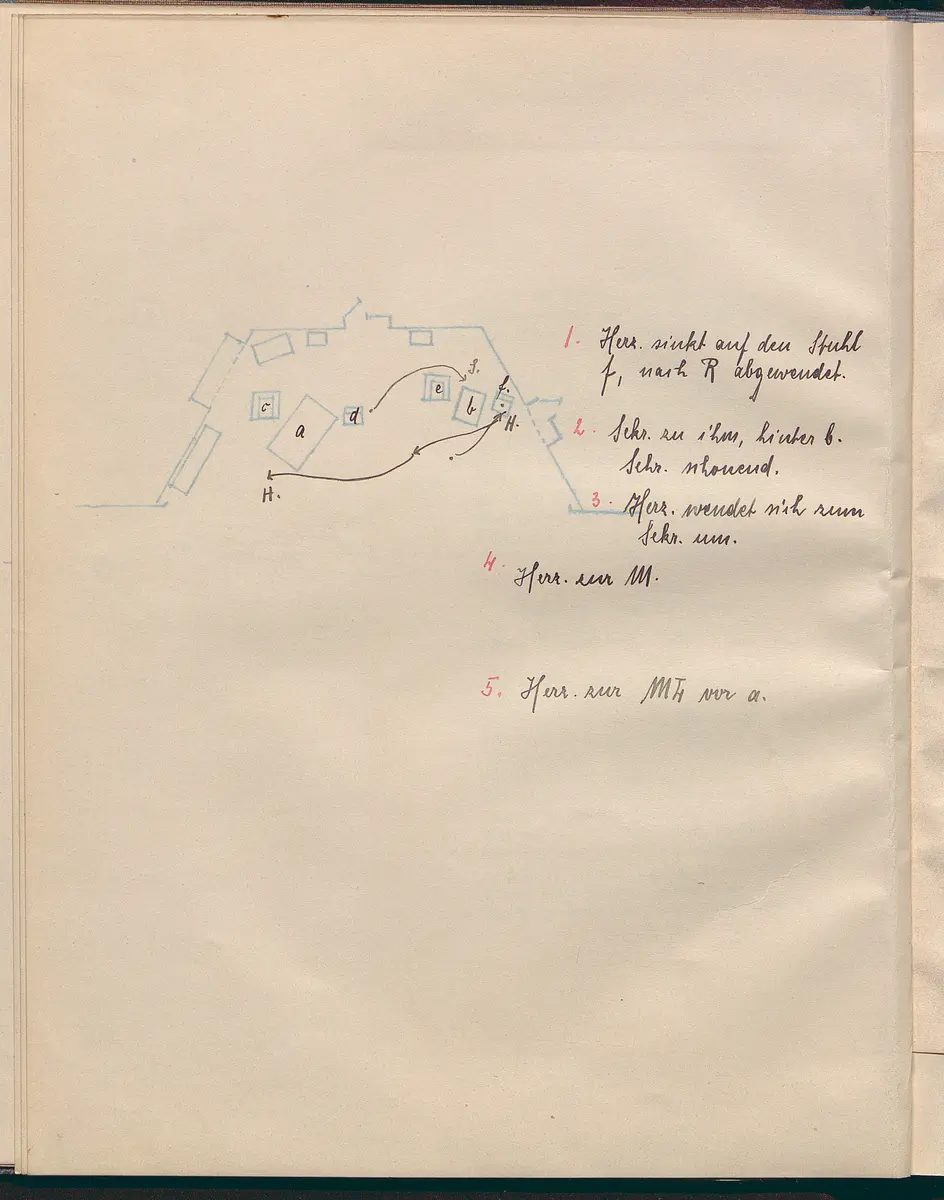 S.
f.
e
c
d
b
a
H.
H.
1. Herz. sinkt auf den Stuhl
f, nach R abgewendet.
2. Sekr. zu ihm, hinter b.
Sehr schonend.
3. Herz. wendet sich zum
Sekr. um.
4. Herz. zur M.
5. Herz. zur vor a.